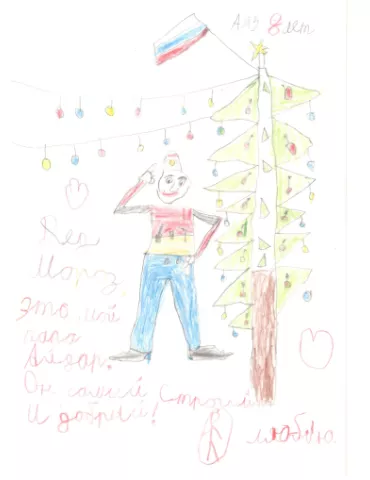 Аяз 8 лет.
Дед
Мороз,
Это мой
папа
Айдар.
Он самый строгий
И добрый!
Я люблю